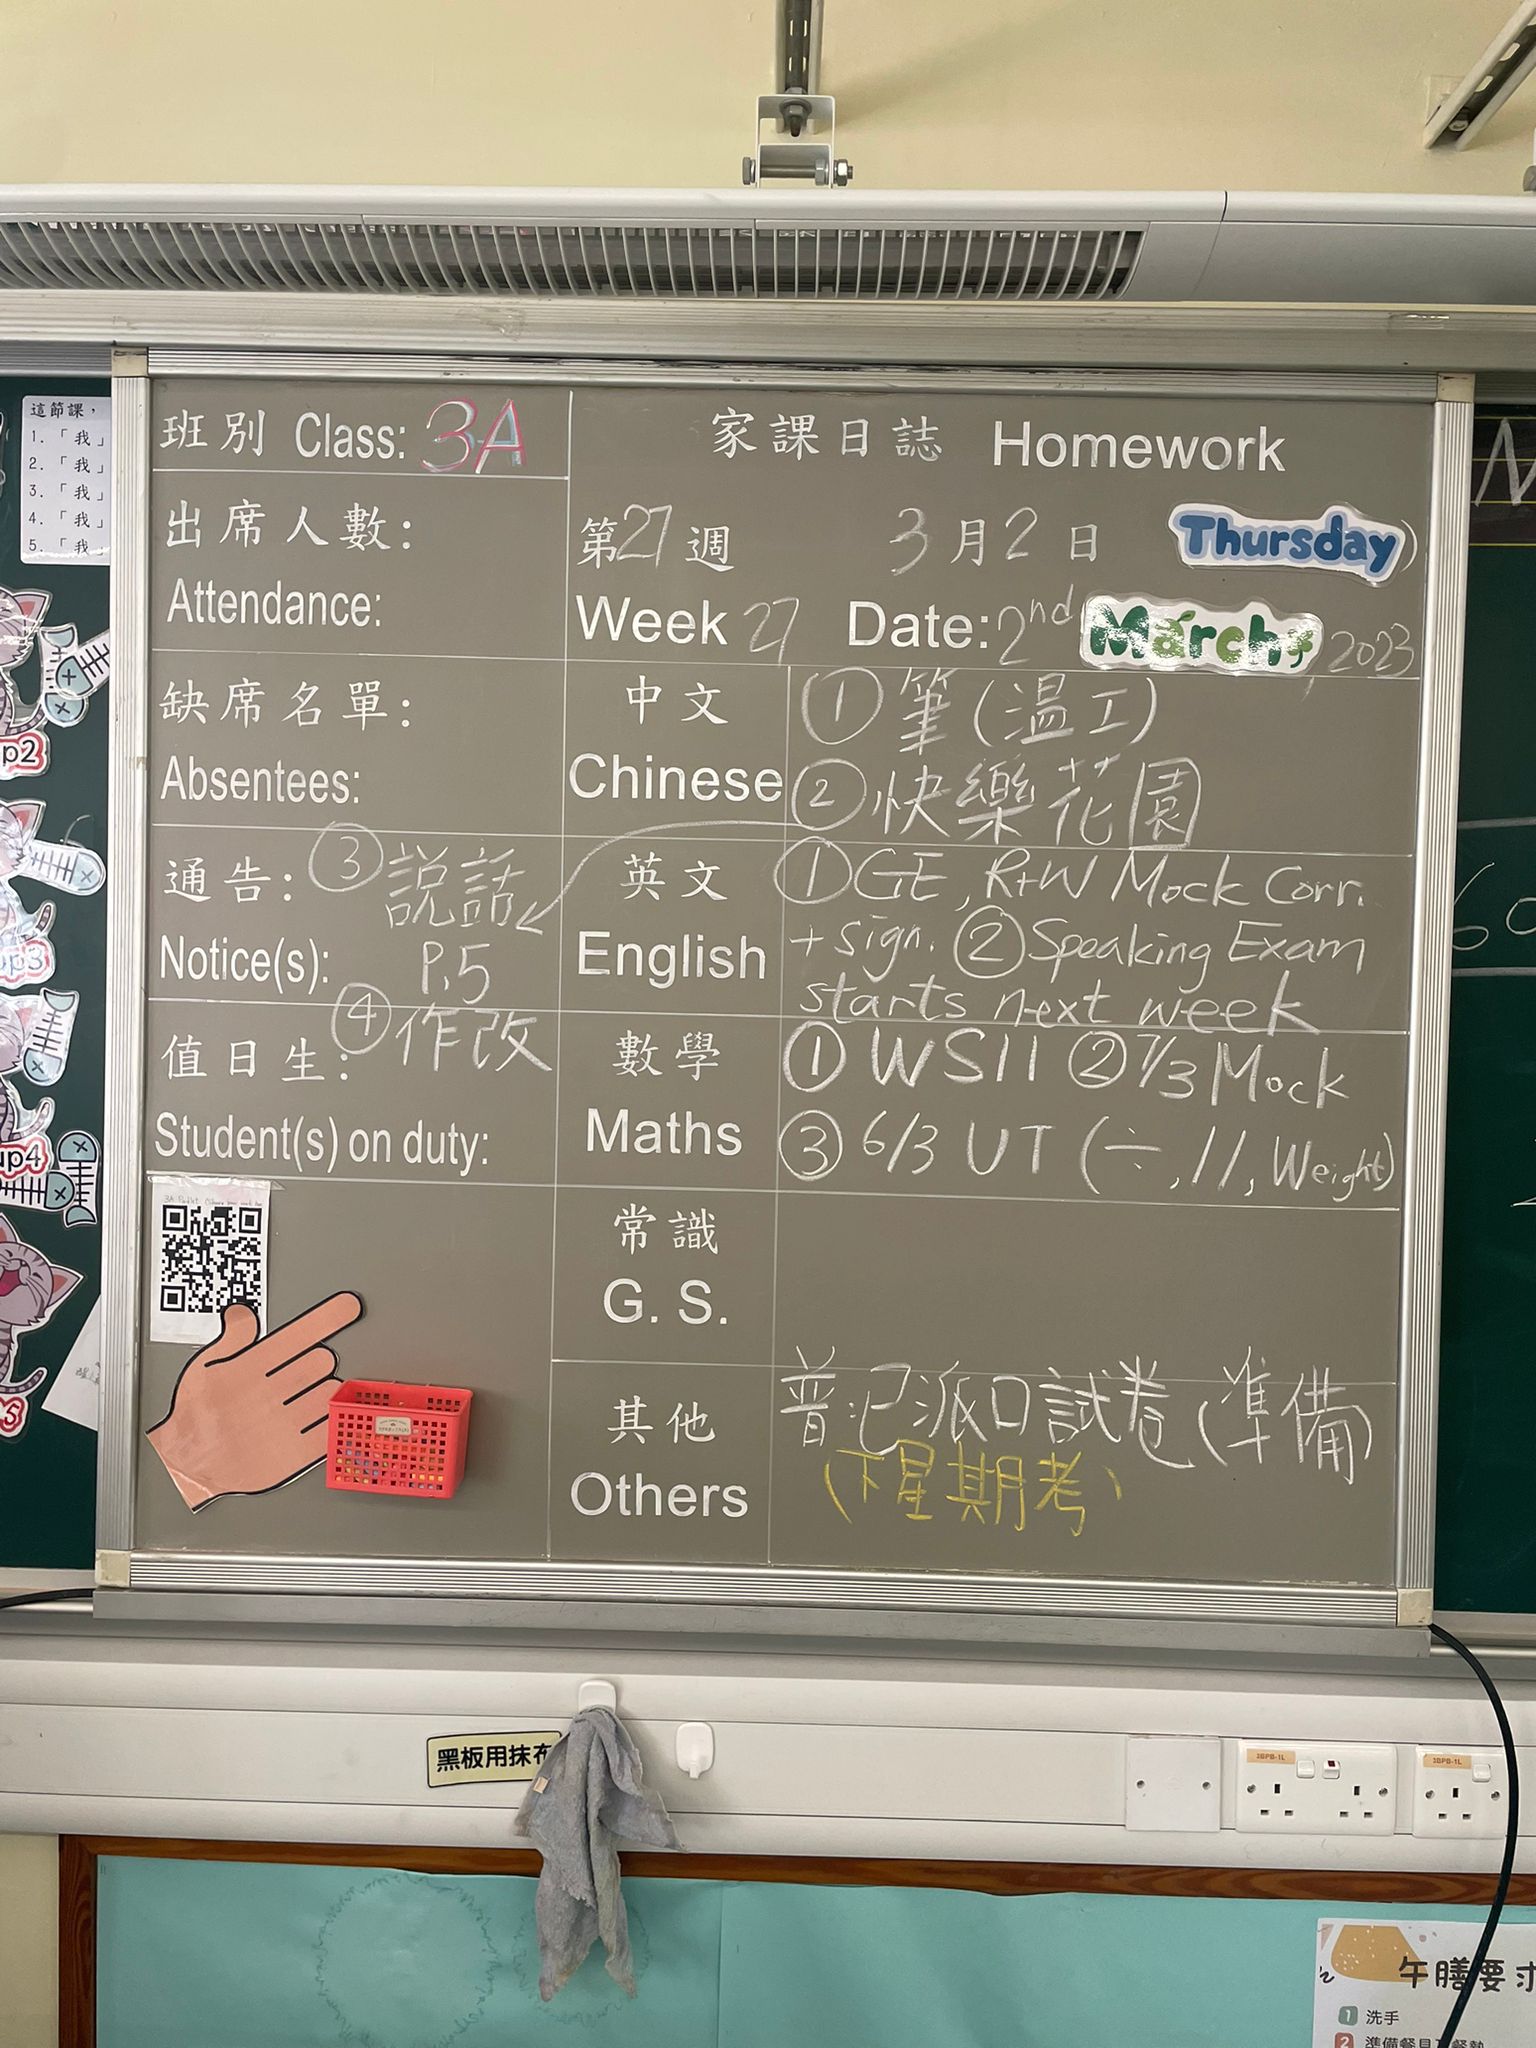 班別 Class: 3A
家課日誌 Homework
出席人數:
Attendance:
第27週 3月2日 Thursday)
Week 27 Date: 2nd March, 2023
缺席名單:
Absentees:
中文
Chinese
①筆(溫工)
②快樂花園
通告: ③說話
Notice(s): P.5
英文
English
①GE, R+W Mock Corr.
+ sign. ②Speaking Exam
starts next week
值日生: ④作改
Student(s) on duty:
數學
Maths
①WS11 ②7/3 Mock
③6/3 UT (÷, //, Weight)
常識
G. S.
其他
Others
普:已派口試卷(準備)
(下星期考)
這節課，
1.「我」
2.「我」
3.「我」
4.「我」
5.「我」
p2
up3
up4
5
黑板用抹布
3BPB-1L
3BPB-1L
午膳要求
1 洗手
2 準備餐具